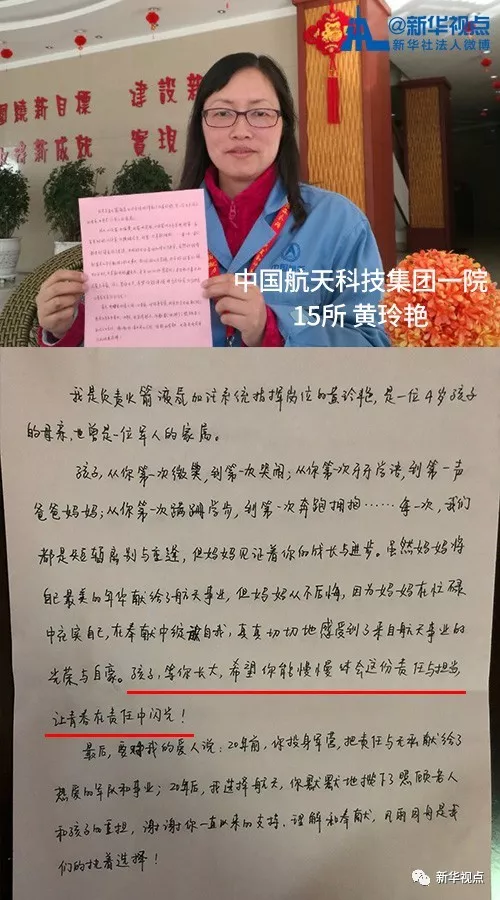 @新华视点
新华社法人微博
建设新
实现
中国航天科技集团一院
15所 黄玲艳
我是负责火箭液氢加注系统指挥岗位的黄玲艳，是一位4岁孩子
的母亲，也曾是一位军人的家属。
孩子，从你第一次微笑，到第一次哭闹；从你第一次牙牙学语，到第一声
爸爸妈妈；从你第一次蹒跚学步，到第一次奔跑拥抱……每一次，我们
都是短暂离别与重逢，但妈妈见证着你的成长与进步。虽然妈妈将
自己最美的年华献给了航天事业，但妈妈从不后悔，因为妈妈在忙碌
中充实自己，在奉献中绽放自我，真真切切地感受到了来自航天事业的
光荣与自豪。孩子，等你长大，希望你能慢慢体会这份责任与担当，
让青春在责任中闪光！
最后，要对我的爱人说：20年前，你投身军营，把责任与无私献给了
热爱的军队和事业；20年后，我选择航天，你默默地揽下了照顾老人
和孩子的重担，谢谢你一直以来的支持、理解和奉献，风雨同舟是我
们的执着选择！
新华视点